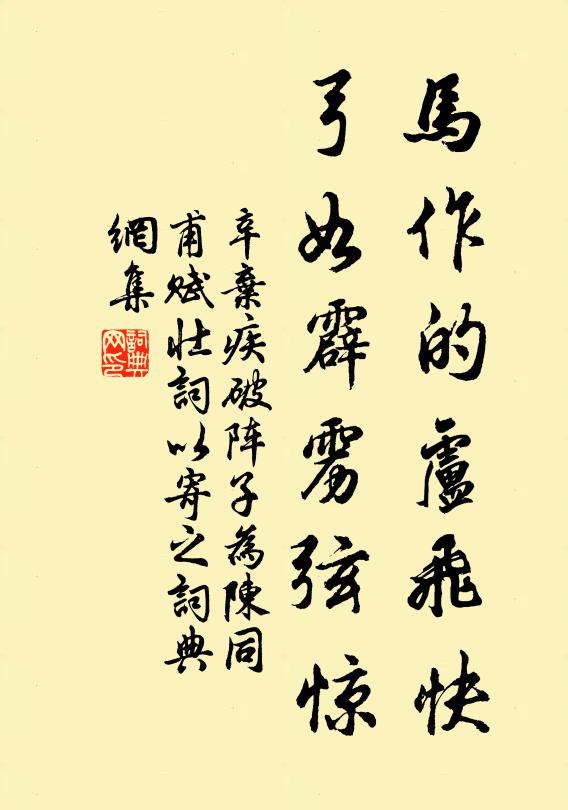 馬作的盧飛快
弓如霹雳弦惊
辛棄疾破阵子為陳同
甫赋壮詞以寄之詞典
網集
詞典
网印